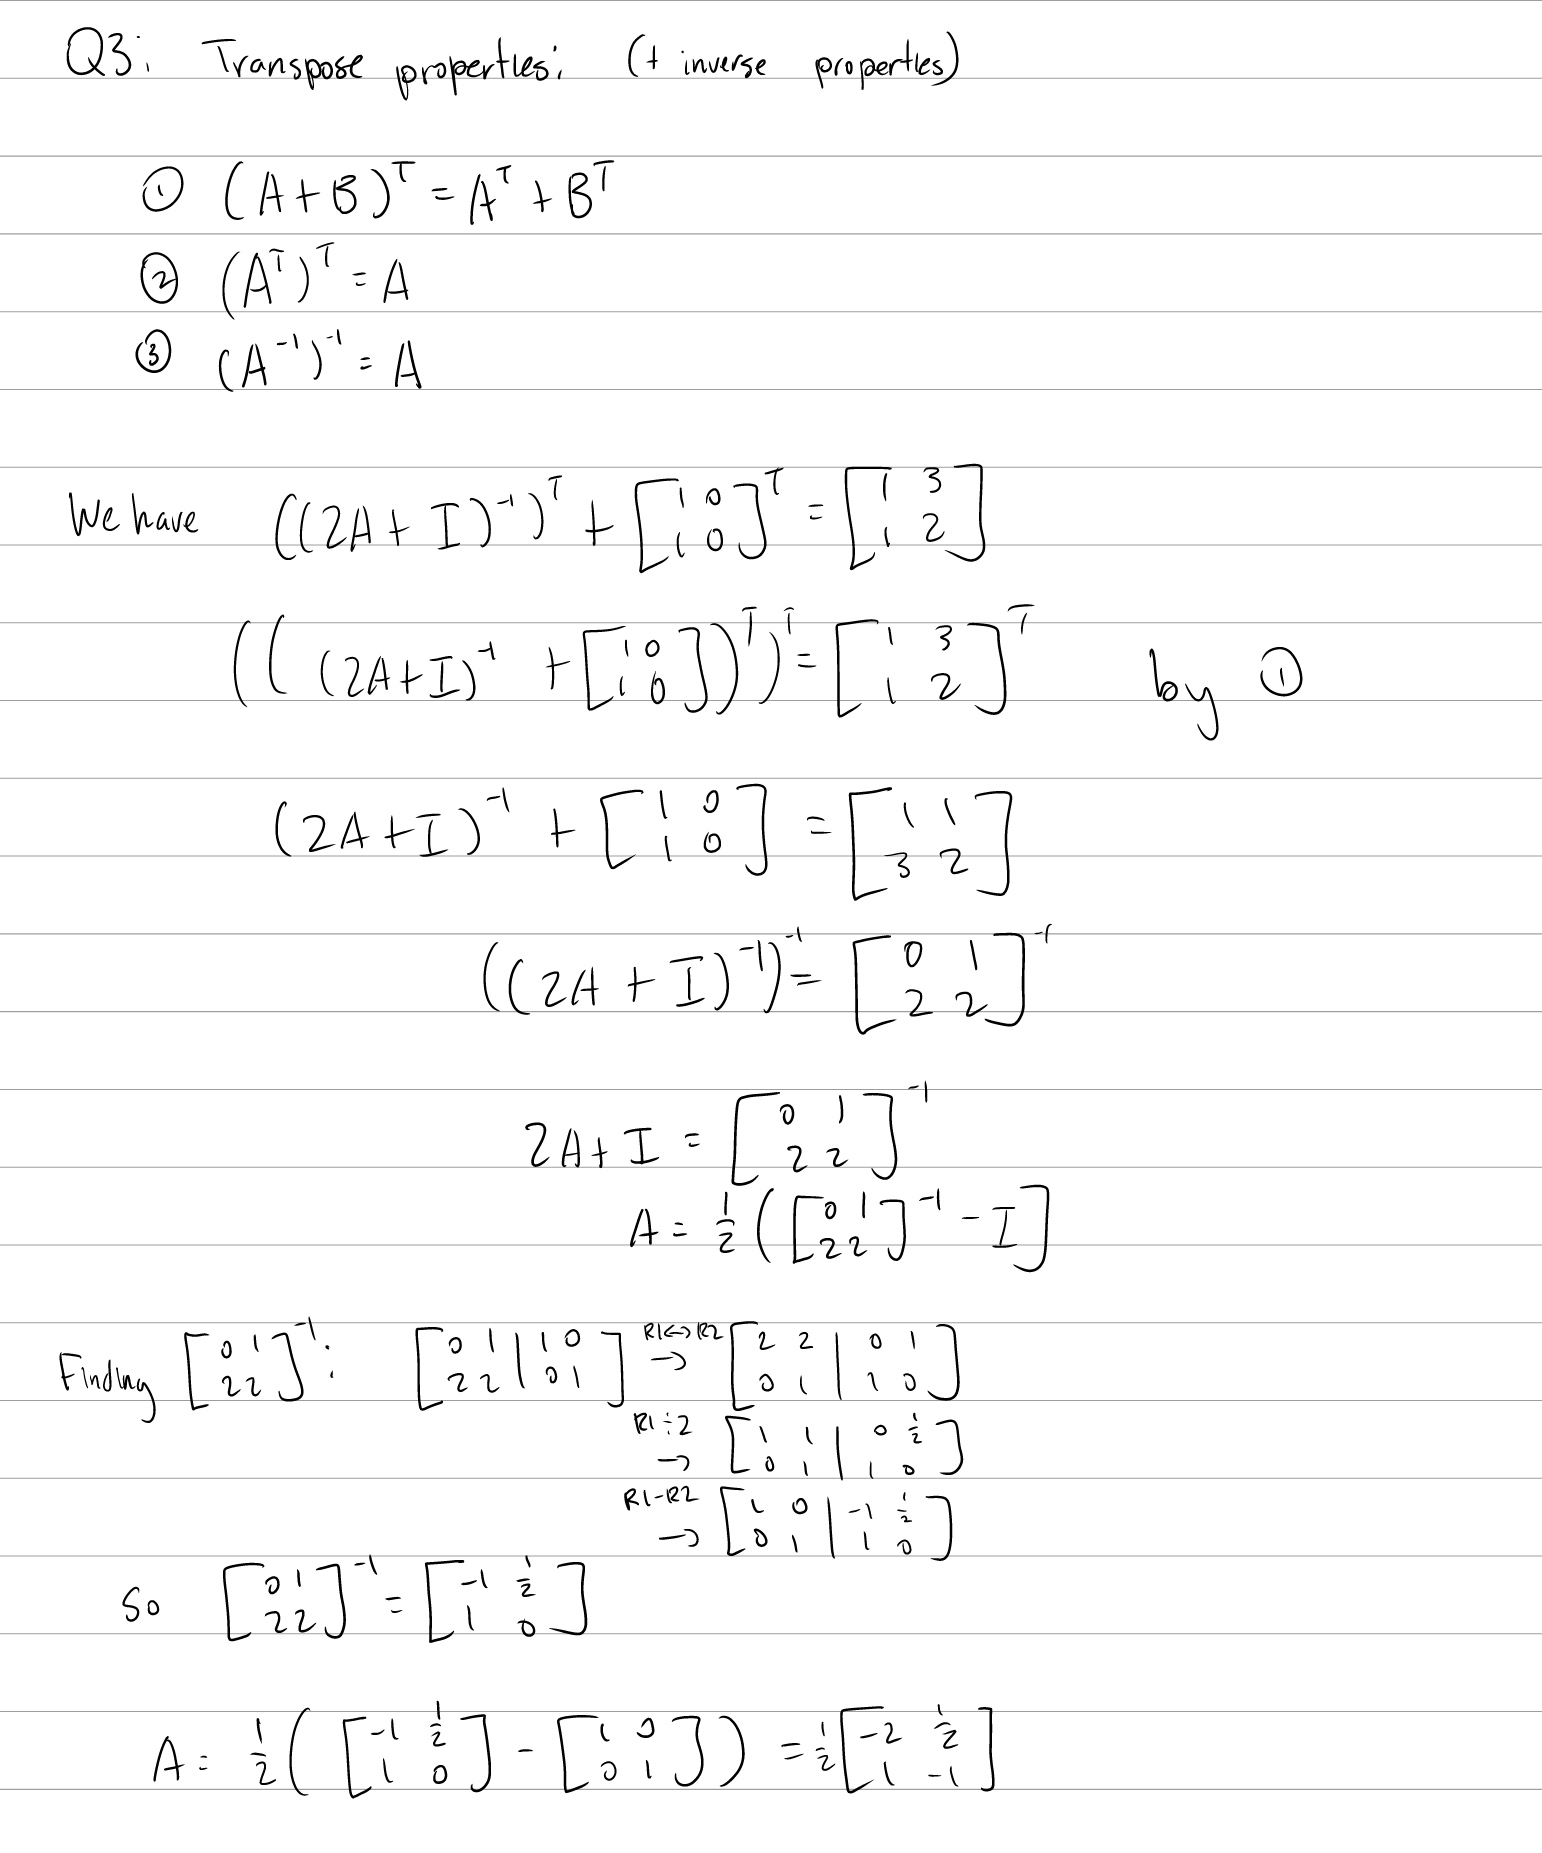 Q3: Transpose properties: (+ inverse properties)
① (A+B)^T = A^T + B^T
② (A^T)^T = A
③ (A^-1)^-1 = A
We have ((2A + I)^-1)^T + [1 0; 1 0]^T = [1 3; 1 2]
(((2A+I)^-1 + [1 0; 1 0])^T)^T = [1 3; 1 2]^T by ①
(2A+I)^-1 + [1 0; 1 0] = [1 1; 3 2]
((2A + I)^-1)^-1 = [0 1; 2 2]^-1
2A + I = [0 1; 2 2]^-1
A = 1/2 ([0 1; 2 2]^-1 - I]
Finding [0 1; 2 2]^-1: [0 1 | 1 0; 2 2 | 0 1] R1↔R2 → [2 2 | 0 1; 0 1 | 1 0]
R1÷2 → [1 1 | 0 1/2; 0 1 | 1 0]
R1-R2 → [1 0 | -1 1/2; 0 1 | 1 0]
So [0 1; 2 2]^-1 = [-1 1/2; 1 0]
A = 1/2 ([-1 1/2; 1 0] - [1 0; 0 1]) = 1/2 [-2 1/2; 1 -1]